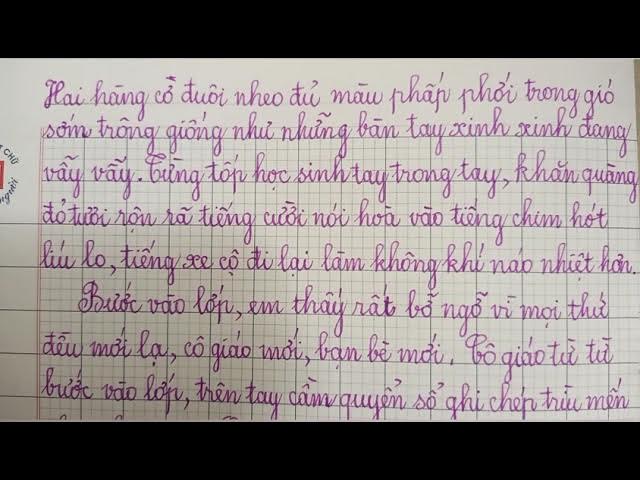 Hai hàng cờ đuôi nheo đủ màu phấp phới trong gió
sớm trông giống như những bàn tay xinh xinh đang
vẫy vẫy. Từng tốp học sinh tay trong tay, khăn quàng
đỏ tươi rộn rã tiếng cười nói hoà vào tiếng chim hót
líu lo, tiếng xe cộ đi lại làm không khí náo nhiệt hơn.
Bước vào lớp, em thấy rất bỡ ngỡ vì mọi thứ
đều mới lạ, cô giáo mới, bạn bè mới. Cô giáo từ từ
bước vào lớp, trên tay cầm quyển sổ ghi chép trìu mến
CHỮ
người